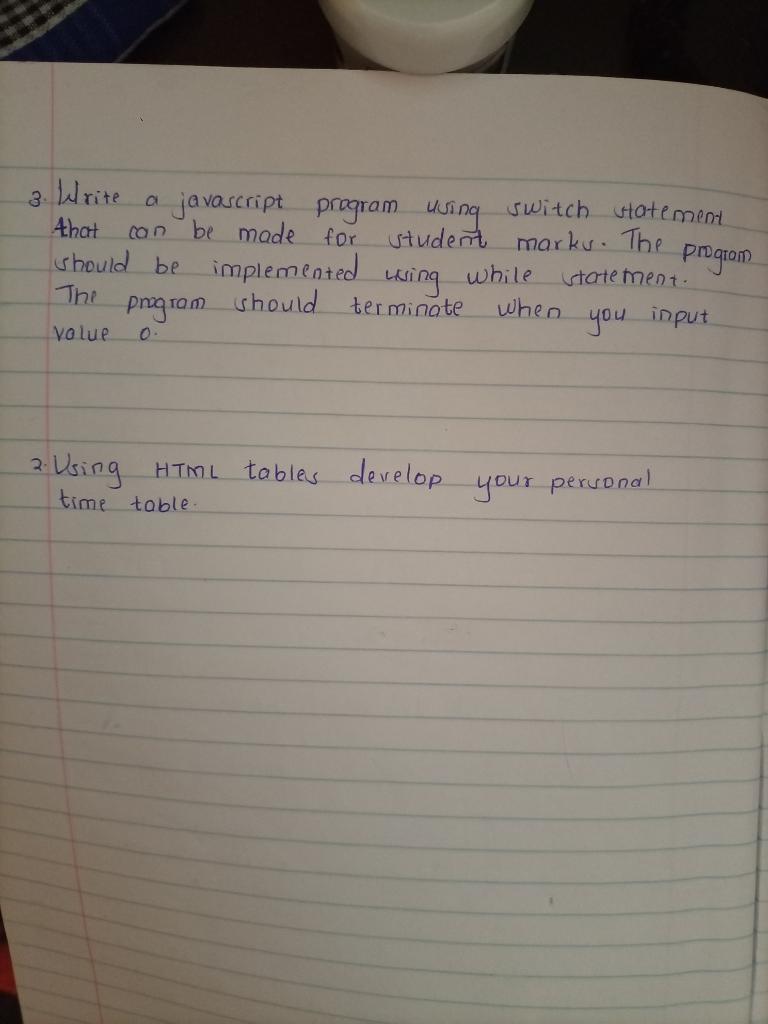 3. Write a javascript program using switch statement
that can be made for student marks. The program
should be implemented using while statement.
The program should terminate when you input
value 0.
2. Using HTML tables develop your personal
time table.